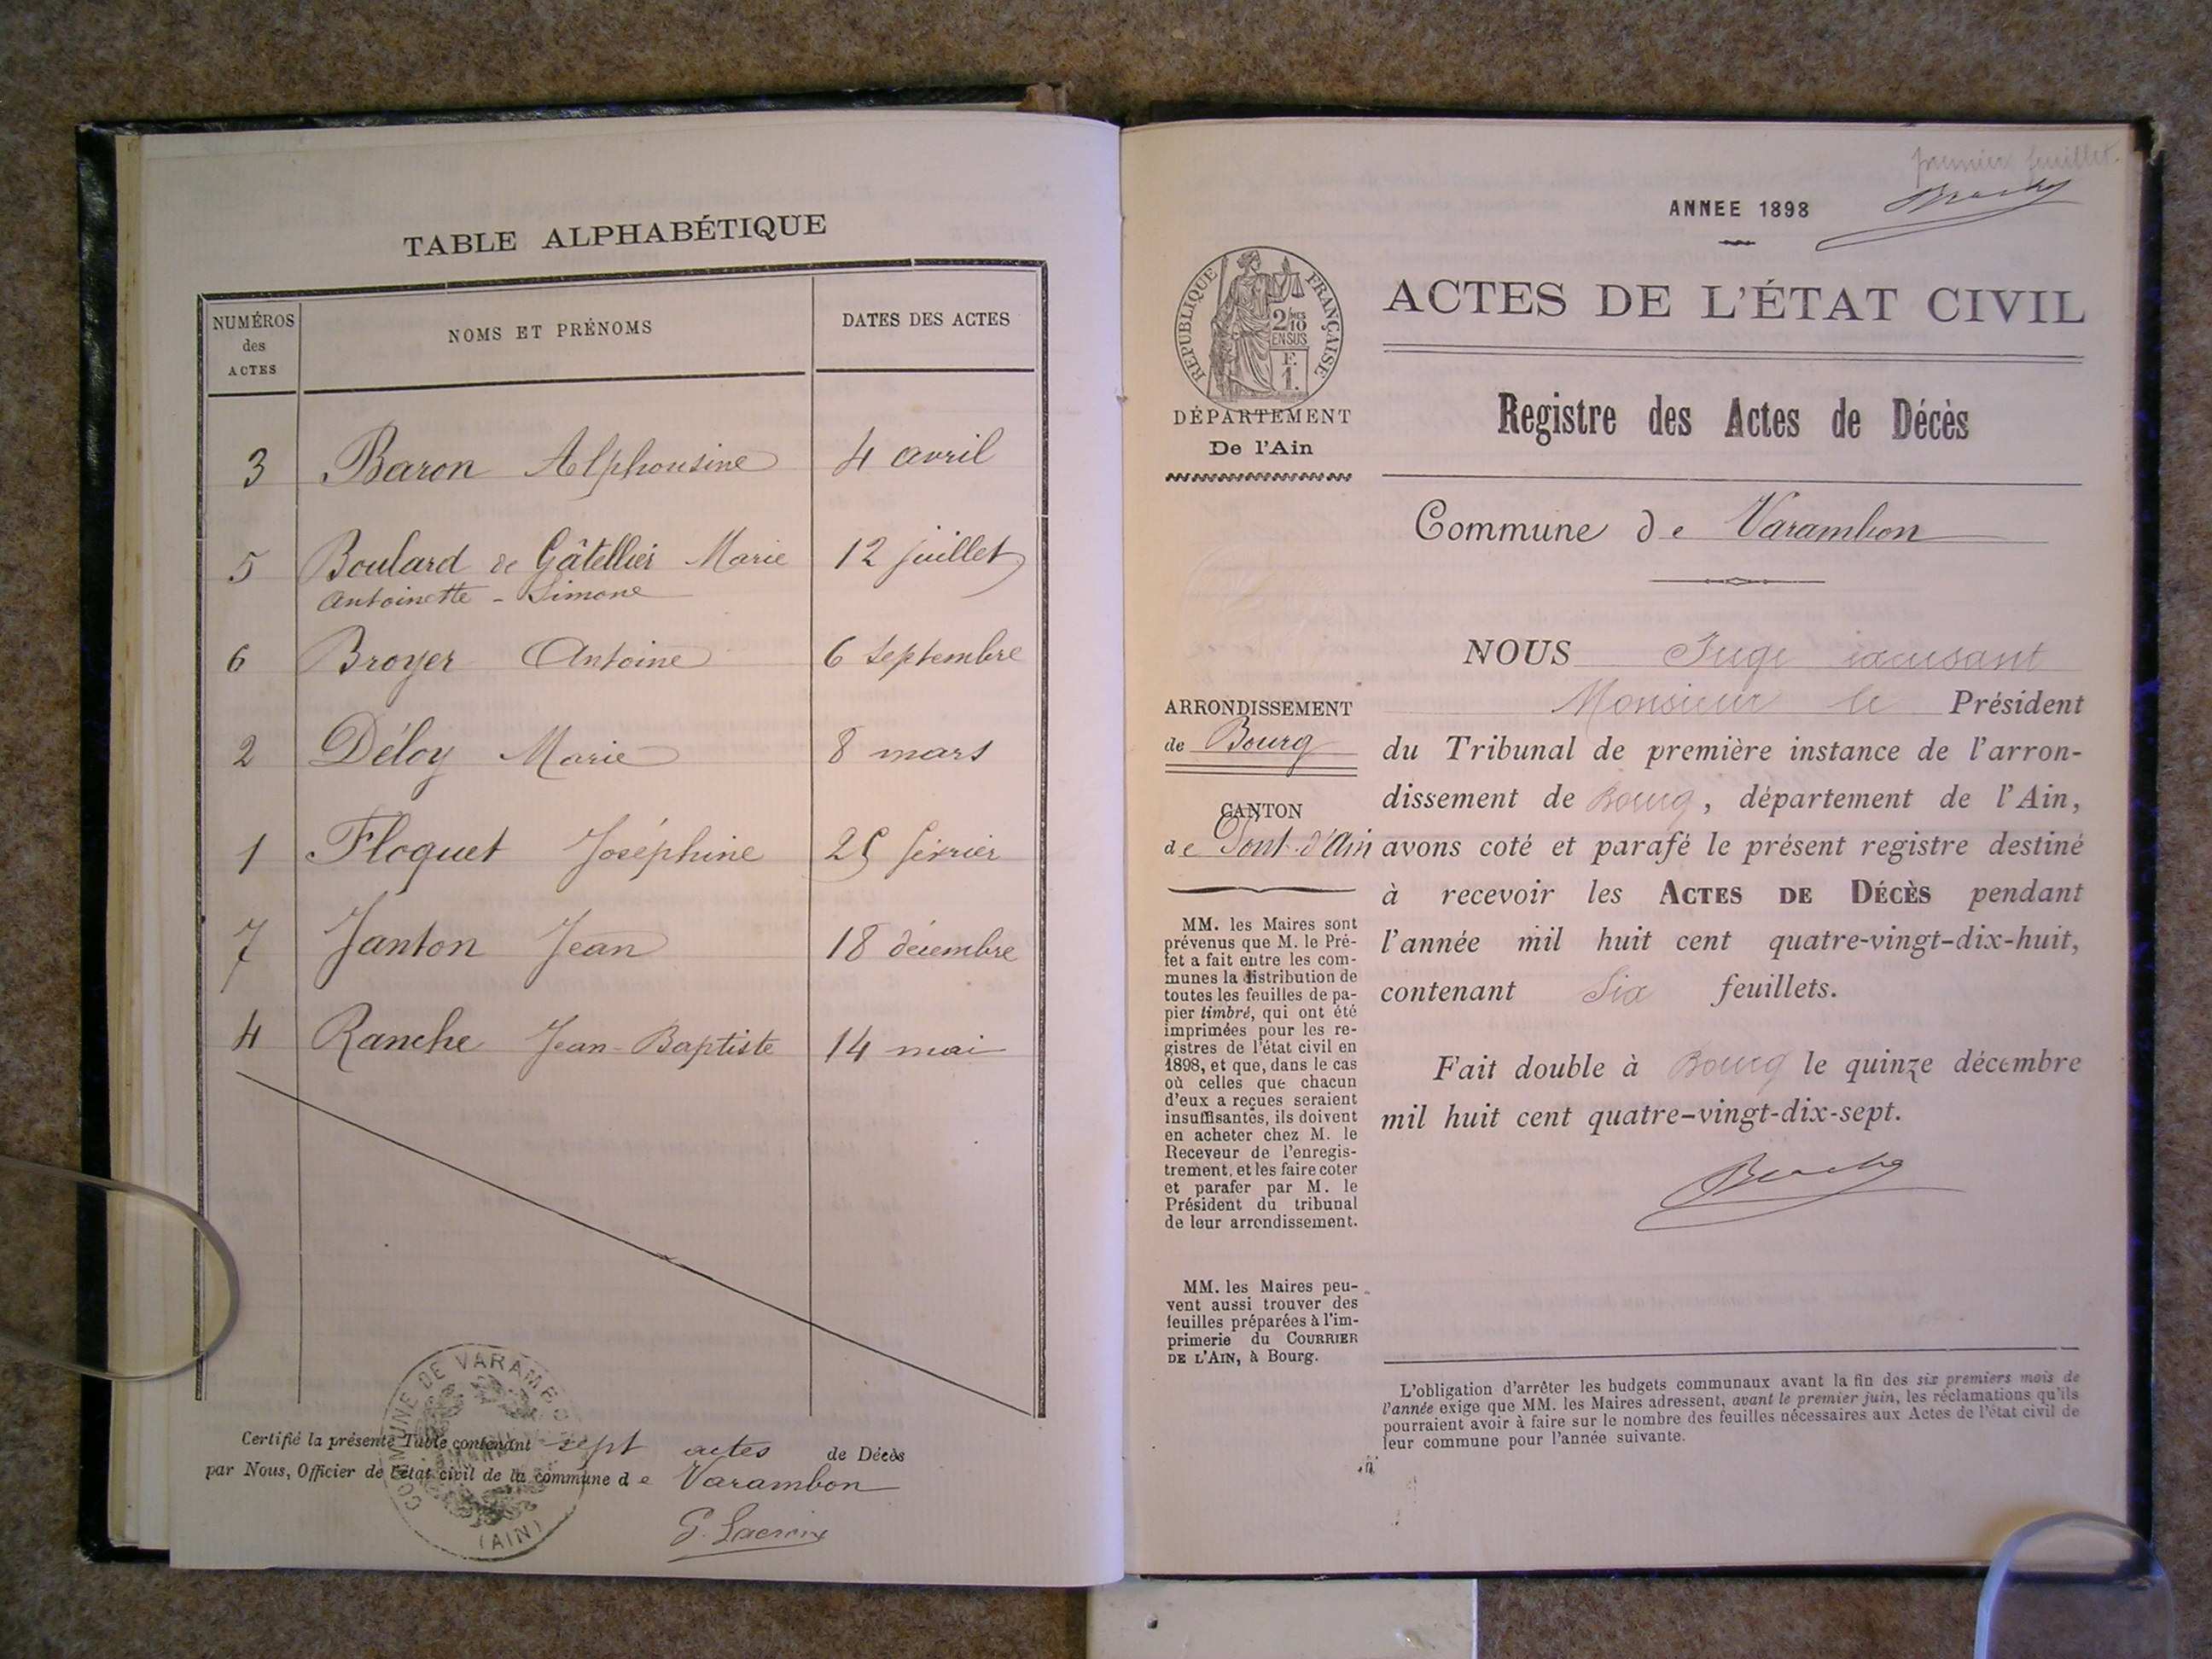 TABLE ALPHABÉTIQUE
NUMÉROS des ACTES NOMS ET PRÉNOMS DATES DES ACTES
3 Baron Alphonsine 4 avril
5 Boulard de Gâtellier Marie 12 juillet
Antoinette - Simone
6 Broyer Antoine 6 septembre
2 Déloy Marie 8 mars
1 Floquet Joséphine 25 février
7 Janton Jean 18 décembre
4 Ranche Jean-Baptiste 14 mai
Certifié la présente Table contenant sept actes de Décès
par Nous, Officier de l'état civil de la commune de Varambon
G. Lacroix
COMMUNE DE VARAMBO
(AIN)
premier feuillet.
ANNEE 1898
RÉPUBLIQUE FRANÇAISE
2/10 MES
EN SUS
F.
1.
DÉPARTEMENT
De l'Ain
ARRONDISSEMENT
de Bourg
CANTON
de Pont-d'Ain
MM. les Maires sont
prévenus que M. le Pré-
fet a fait entre les com-
munes la distribution de
toutes les feuilles de pa-
pier timbré, qui ont été
imprimées pour les re-
gistres de l'état civil en
1898, et que, dans le cas
où celles que chacun
d'eux a reçues seraient
insuffisantes, ils doivent
en acheter chez M. le
Receveur de l'enregis-
trement, et les faire coter
et parafer par M. le
Président du tribunal
de leur arrondissement.
MM. les Maires peu-
vent aussi trouver des
feuilles préparées à l'im-
primerie du COURRIER
DE L'AIN, à Bourg.
ACTES DE L'ÉTAT CIVIL
Registre des Actes de Décès
Commune de Varambon
NOUS Juge
Monsieur le Président
du Tribunal de première instance de l'arron-
dissement de Bourg, département de l'Ain,
avons coté et parafé le présent registre destiné
à recevoir les ACTES DE DÉCÈS pendant
l'année mil huit cent quatre-vingt-dix-huit,
contenant Six feuillets.
Fait double à Bourg le quinze décembre
mil huit cent quatre-vingt-dix-sept.
L'obligation d'arrêter les budgets communaux avant la fin des six premiers mois de
l'année exige que MM. les Maires adressent, avant le premier juin, les réclamations qu'ils
pourraient avoir à faire sur le nombre des feuilles nécessaires aux Actes de l'état civil de
leur commune pour l'année suivante.